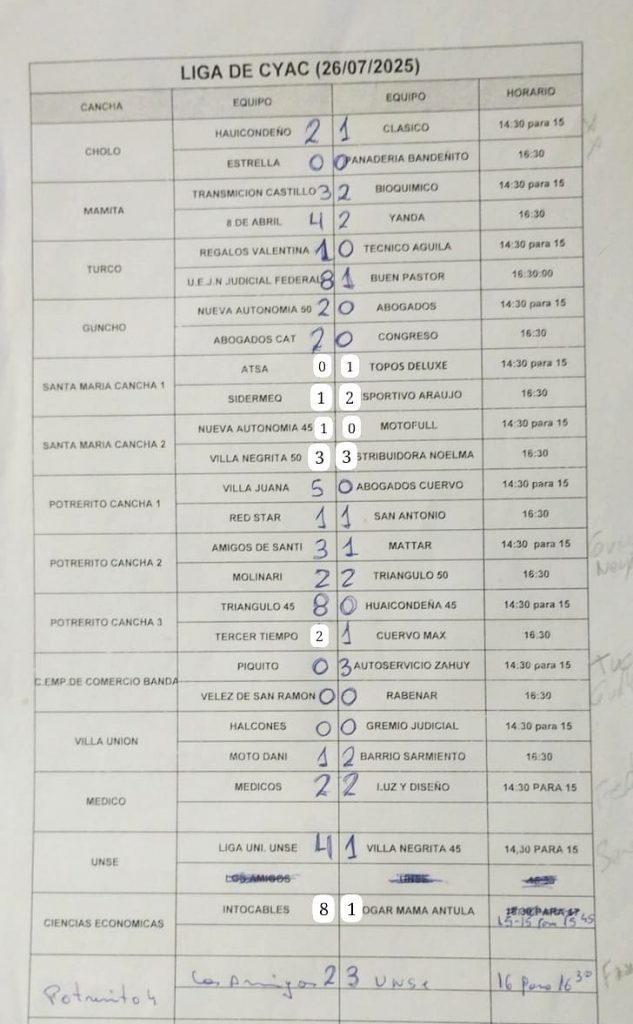 LIGA DE CYAC (26/07/2025)
CANCHA EQUIPO EQUIPO HORARIO
CHOLO
HAUICONDEÑO 2 1 CLASICO 14:30 para 15
ESTRELLA 0 0 PANADERIA BANDEÑITO 16:30
MAMITA
TRANSMICION CASTILLO 3 2 BIOQUIMICO 14:30 para 15
8 DE ABRIL 4 2 YANDA 16:30
TURCO
REGALOS VALENTINA 1 0 TECNICO AGUILA 14:30 para 15
U.E.J.N JUDICIAL FEDERAL 8 1 BUEN PASTOR 16:30:00
GUNCHO
NUEVA AUTONOMIA 50 2 0 ABOGADOS 14:30 para 15
ABOGADOS CAT 2 0 CONGRESO 16:30
SANTA MARIA CANCHA 1
ATSA 0 1 TOPOS DELUXE 14:30 para 15
SIDERMEQ 1 2 SPORTIVO ARAUJO 16:30
SANTA MARIA CANCHA 2
NUEVA AUTONOMIA 45 1 0 MOTOFULL 14:30 para 15
VILLA NEGRITA 50 3 3 STRIBUIDORA NOELMA 16:30
POTRERITO CANCHA 1
VILLA JUANA 5 0 ABOGADOS CUERVO 14:30 para 15
RED STAR 1 1 SAN ANTONIO 16:30
POTRERITO CANCHA 2
AMIGOS DE SANTI 3 1 MATTAR 14:30 para 15
MOLINARI 2 2 TRIANGULO 50 16:30
POTRERITO CANCHA 3
TRIANGULO 45 8 0 HUAICONDEÑA 45 14:30 para 15
TERCER TIEMPO 2 1 CUERVO MAX 16.30
C.EMP.DE COMERCIO BANDA
PIQUITO 0 3 AUTOSERVICIO ZAHUY 14:30 para 15
VELEZ DE SAN RAMON 0 0 RABENAR 16:30
VILLA UNION
HALCONES 0 0 GREMIO JUDICIAL 14.30 para 15
MOTO DANI 1 2 BARRIO SARMIENTO 16:30
MEDICO
MEDICOS 2 2 LUZ Y DISEÑO 14:30 PARA 15
UNSE
LIGA UNI. UNSE 4 1 VILLA NEGRITA 45 14,30 PARA 15
LOS AMIGOS UNSE 16:30
CIENCIAS ECONOMICAS
INTOCABLES 8 1 OGAR MAMA ANTULA
15-15 para 15 45
Potrerito 4 Los Amigos 2 3 UNSE 16 para 16 30